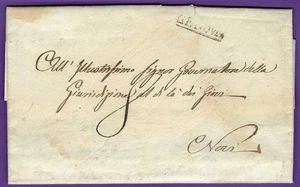 GENOVA
All' Illustrissimo Signor Governatore della
Giurisdizione al di là dei Gioghi
8
Novi